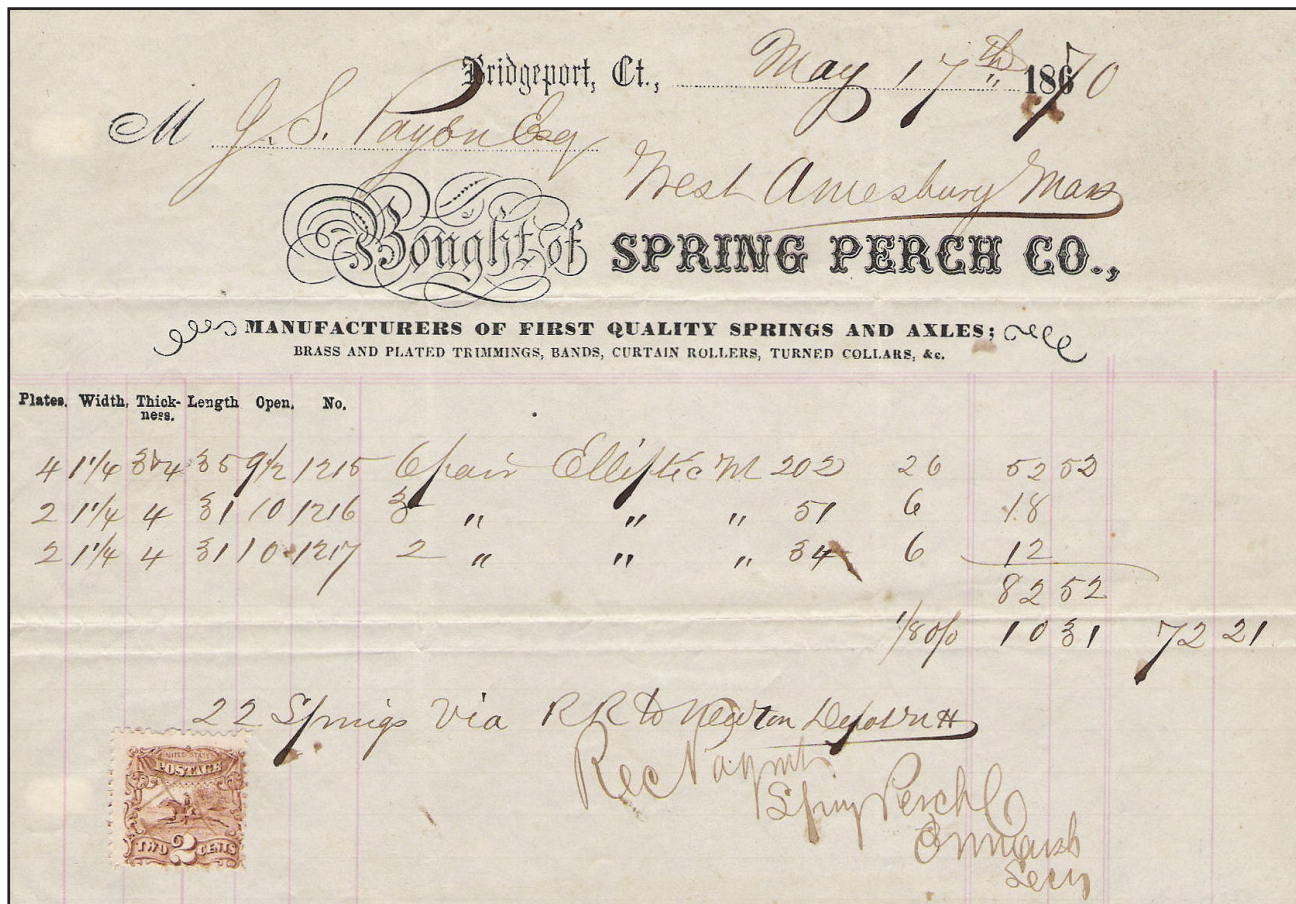 Bridgeport, Ct., May 17th 18670
M J. S. Payson Esq
West Amesbury Mass
Bought of SPRING PERCH CO.,
MANUFACTURERS OF FIRST QUALITY SPRINGS AND AXLES;
BRASS AND PLATED TRIMMINGS, BANDS, CURTAIN ROLLERS, TURNED COLLARS, &c.
Plates. Width, Thick-ness. Length Open. No.
4 1 1/4 3&4 35 9 1/2 1215 6 pair Elliptic M 202 26 52 52
2 1 1/4 4 31 10 1216 3 " " " 51 6 18
2 1 1/4 4 31 10 1217 2 " " " 34 6 12
82 52
1/8 o/o 10 31 72 21
22 Springs Via R R to Newton Depot N H
Rec Paymt
Spring Perch Co
Secy
UNITED STATES
POSTAGE
TWO 2 CENTS